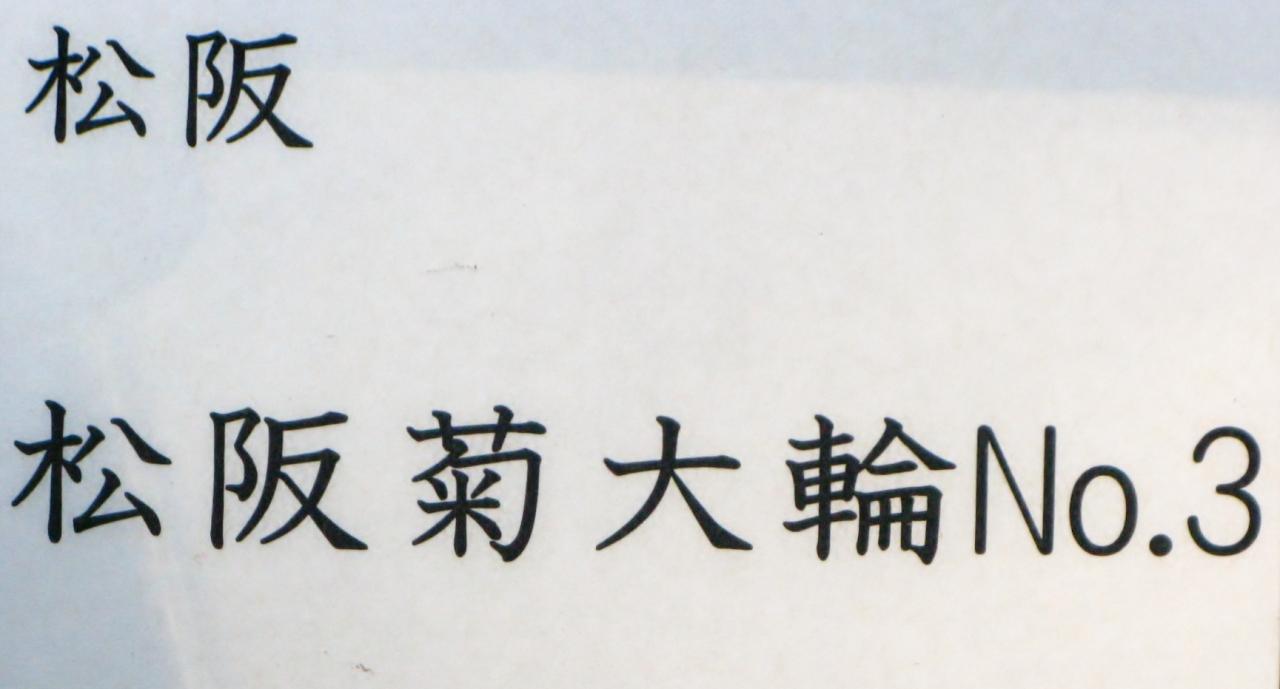 松阪
松阪菊大輪No.3